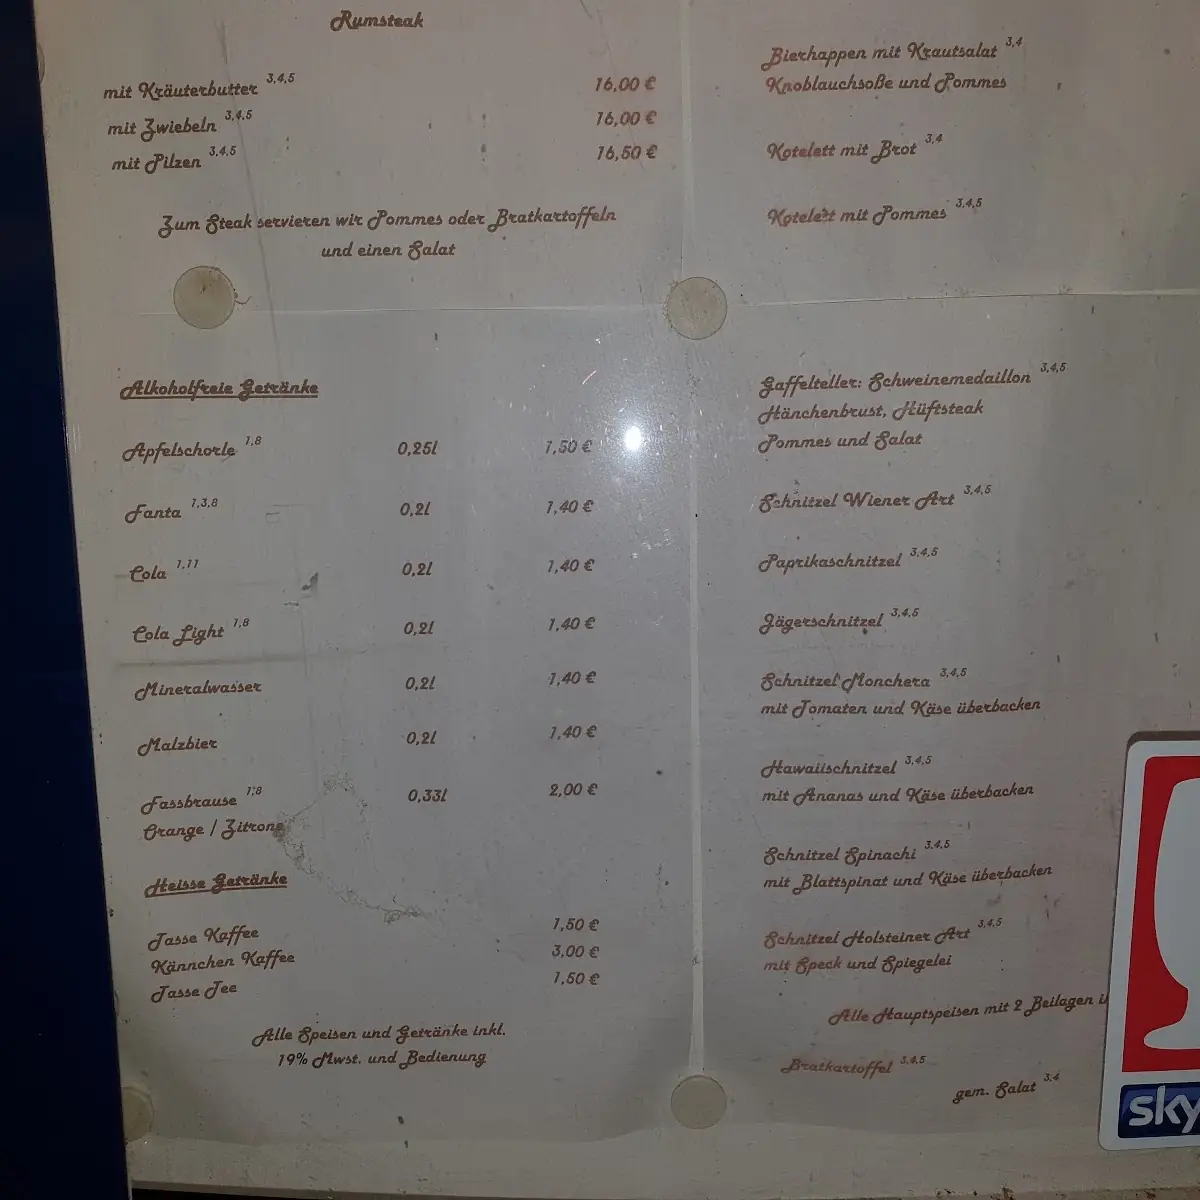 Rumsteak
mit Kräuterbutter 3,4,5 16,00 €
mit Zwiebeln 3,4,5 16,00 €
mit Pilzen 3,4,5 16,50 €
Zum Steak servieren wir Pommes oder Bratkartoffeln
und einen Salat
Alkoholfreie Getränke
Apfelschorle 1,8 0,25l 1,50 €
Fanta 1,3,8 0,2l 1,40 €
Cola 1,11 0,2l 1,40 €
Cola Light 1,8 0,2l 1,40 €
Mineralwasser 0,2l 1,40 €
Malzbier 0,2l 1,40 €
Fassbrause 1,8 0,33l 2,00 €
Orange / Zitrone
Heisse Getränke
Tasse Kaffee 1,50 €
Kännchen Kaffee 3,00 €
Tasse Tee 1,50 €
Alle Speisen und Getränke inkl.
19% Mwst. und Bedienung
Bierhappen mit Krautsalat 3,4
Knoblauchsoße und Pommes
Kotelett mit Brot 3,4
Kotelett mit Pommes 3,4,5
Gaffelteller: Schweinemedaillon 3,4,5
Hänchenbrust, Hüftsteak
Pommes und Salat
Schnitzel Wiener Art 3,4,5
Paprikaschnitzel 3,4,5
Jägerschnitzel 3,4,5
Schnitzel Monchera 3,4,5
mit Tomaten und Käse überbacken
Hawaiischnitzel 3,4,5
mit Ananas und Käse überbacken
Schnitzel Spinachi 3,4,5
mit Blattspinat und Käse überbacken
Schnitzel Holsteiner Art 3,4,5
mit Speck und Spiegelei
Alle Hauptspeisen mit 2 Beilagen
Bratkartoffel 3,4,5
gem. Salat 3,4
sky